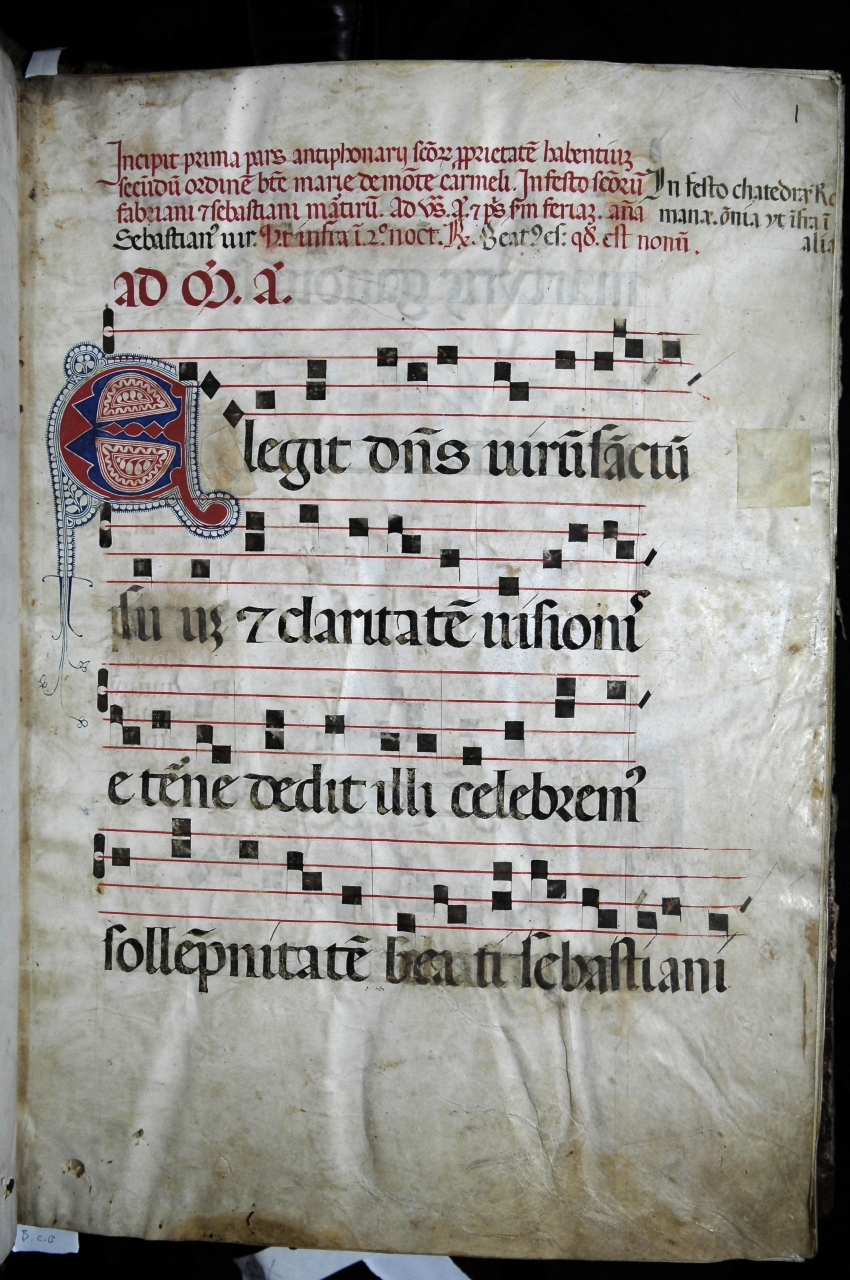 1
Incipit prima pars antiphonarij scõꝝ ꝓprietatẽ habentiuȝ
secũdũ ordinẽ btẽ marie de mõte carmeli. In festo scõꝛũ
fabiani ⁊ sebastiani mãtirũ. Ad vs̃. ã. ⁊ ps̃ sm̃ feriaȝ. aña
Sebastianꝰ uir. Vt infra ĩ. 2º. noct̃. ℞. Beatꝰ es: qđ. est nonũ.
In festo chatedræ Ro
manæ. õnia vt ĩfra ĩ
alia
ad m̃. a.
Elegit dñs uirũ sãctũ
suuȝ ⁊ claritatẽ uisioniˢ
etẽne dedit illi celebremꝰ
sollẽpnitatẽ beati sebastiani
B. C.B